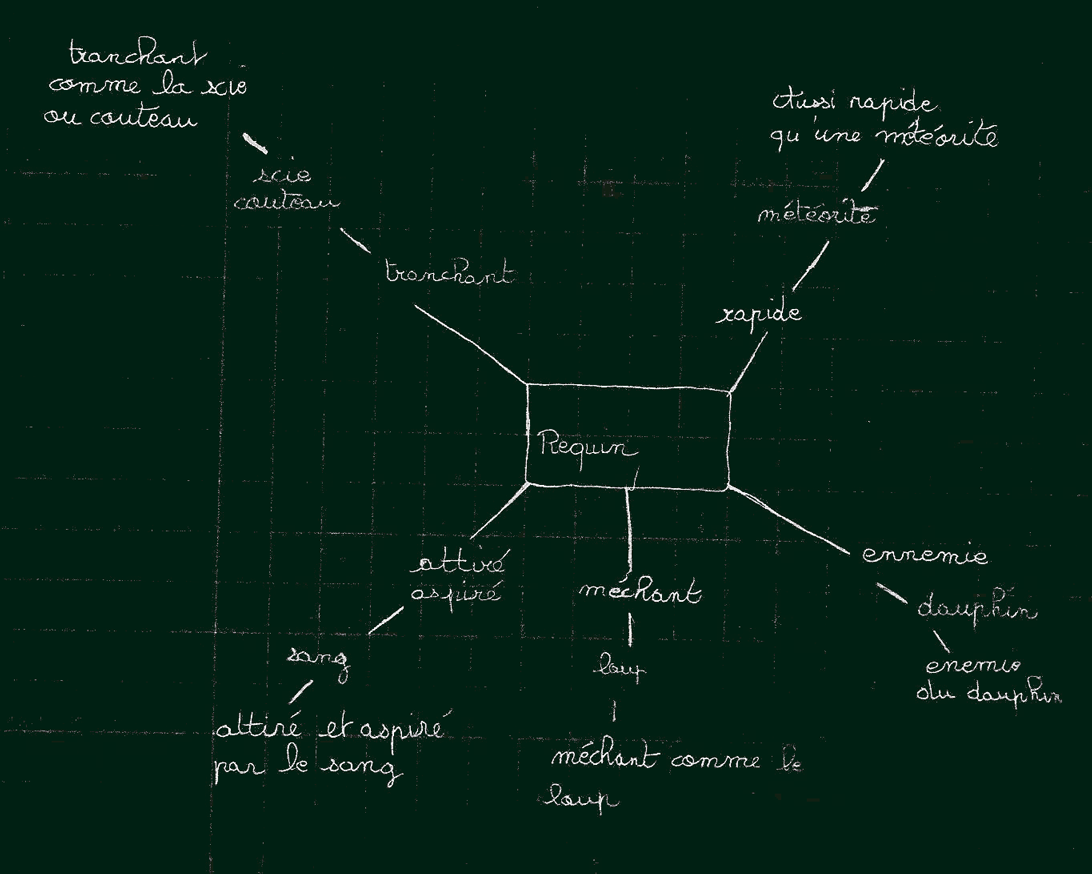 tranchant
comme la scie
ou couteau
scie
couteau
tranchant
Aussi rapide
qu'une météorite
météorite
rapide
Requin
attiré
aspiré
sang
attiré et aspiré
par le sang
méchant
loup
méchant comme le
loup
ennemie
dauphin
enemie
du dauphin